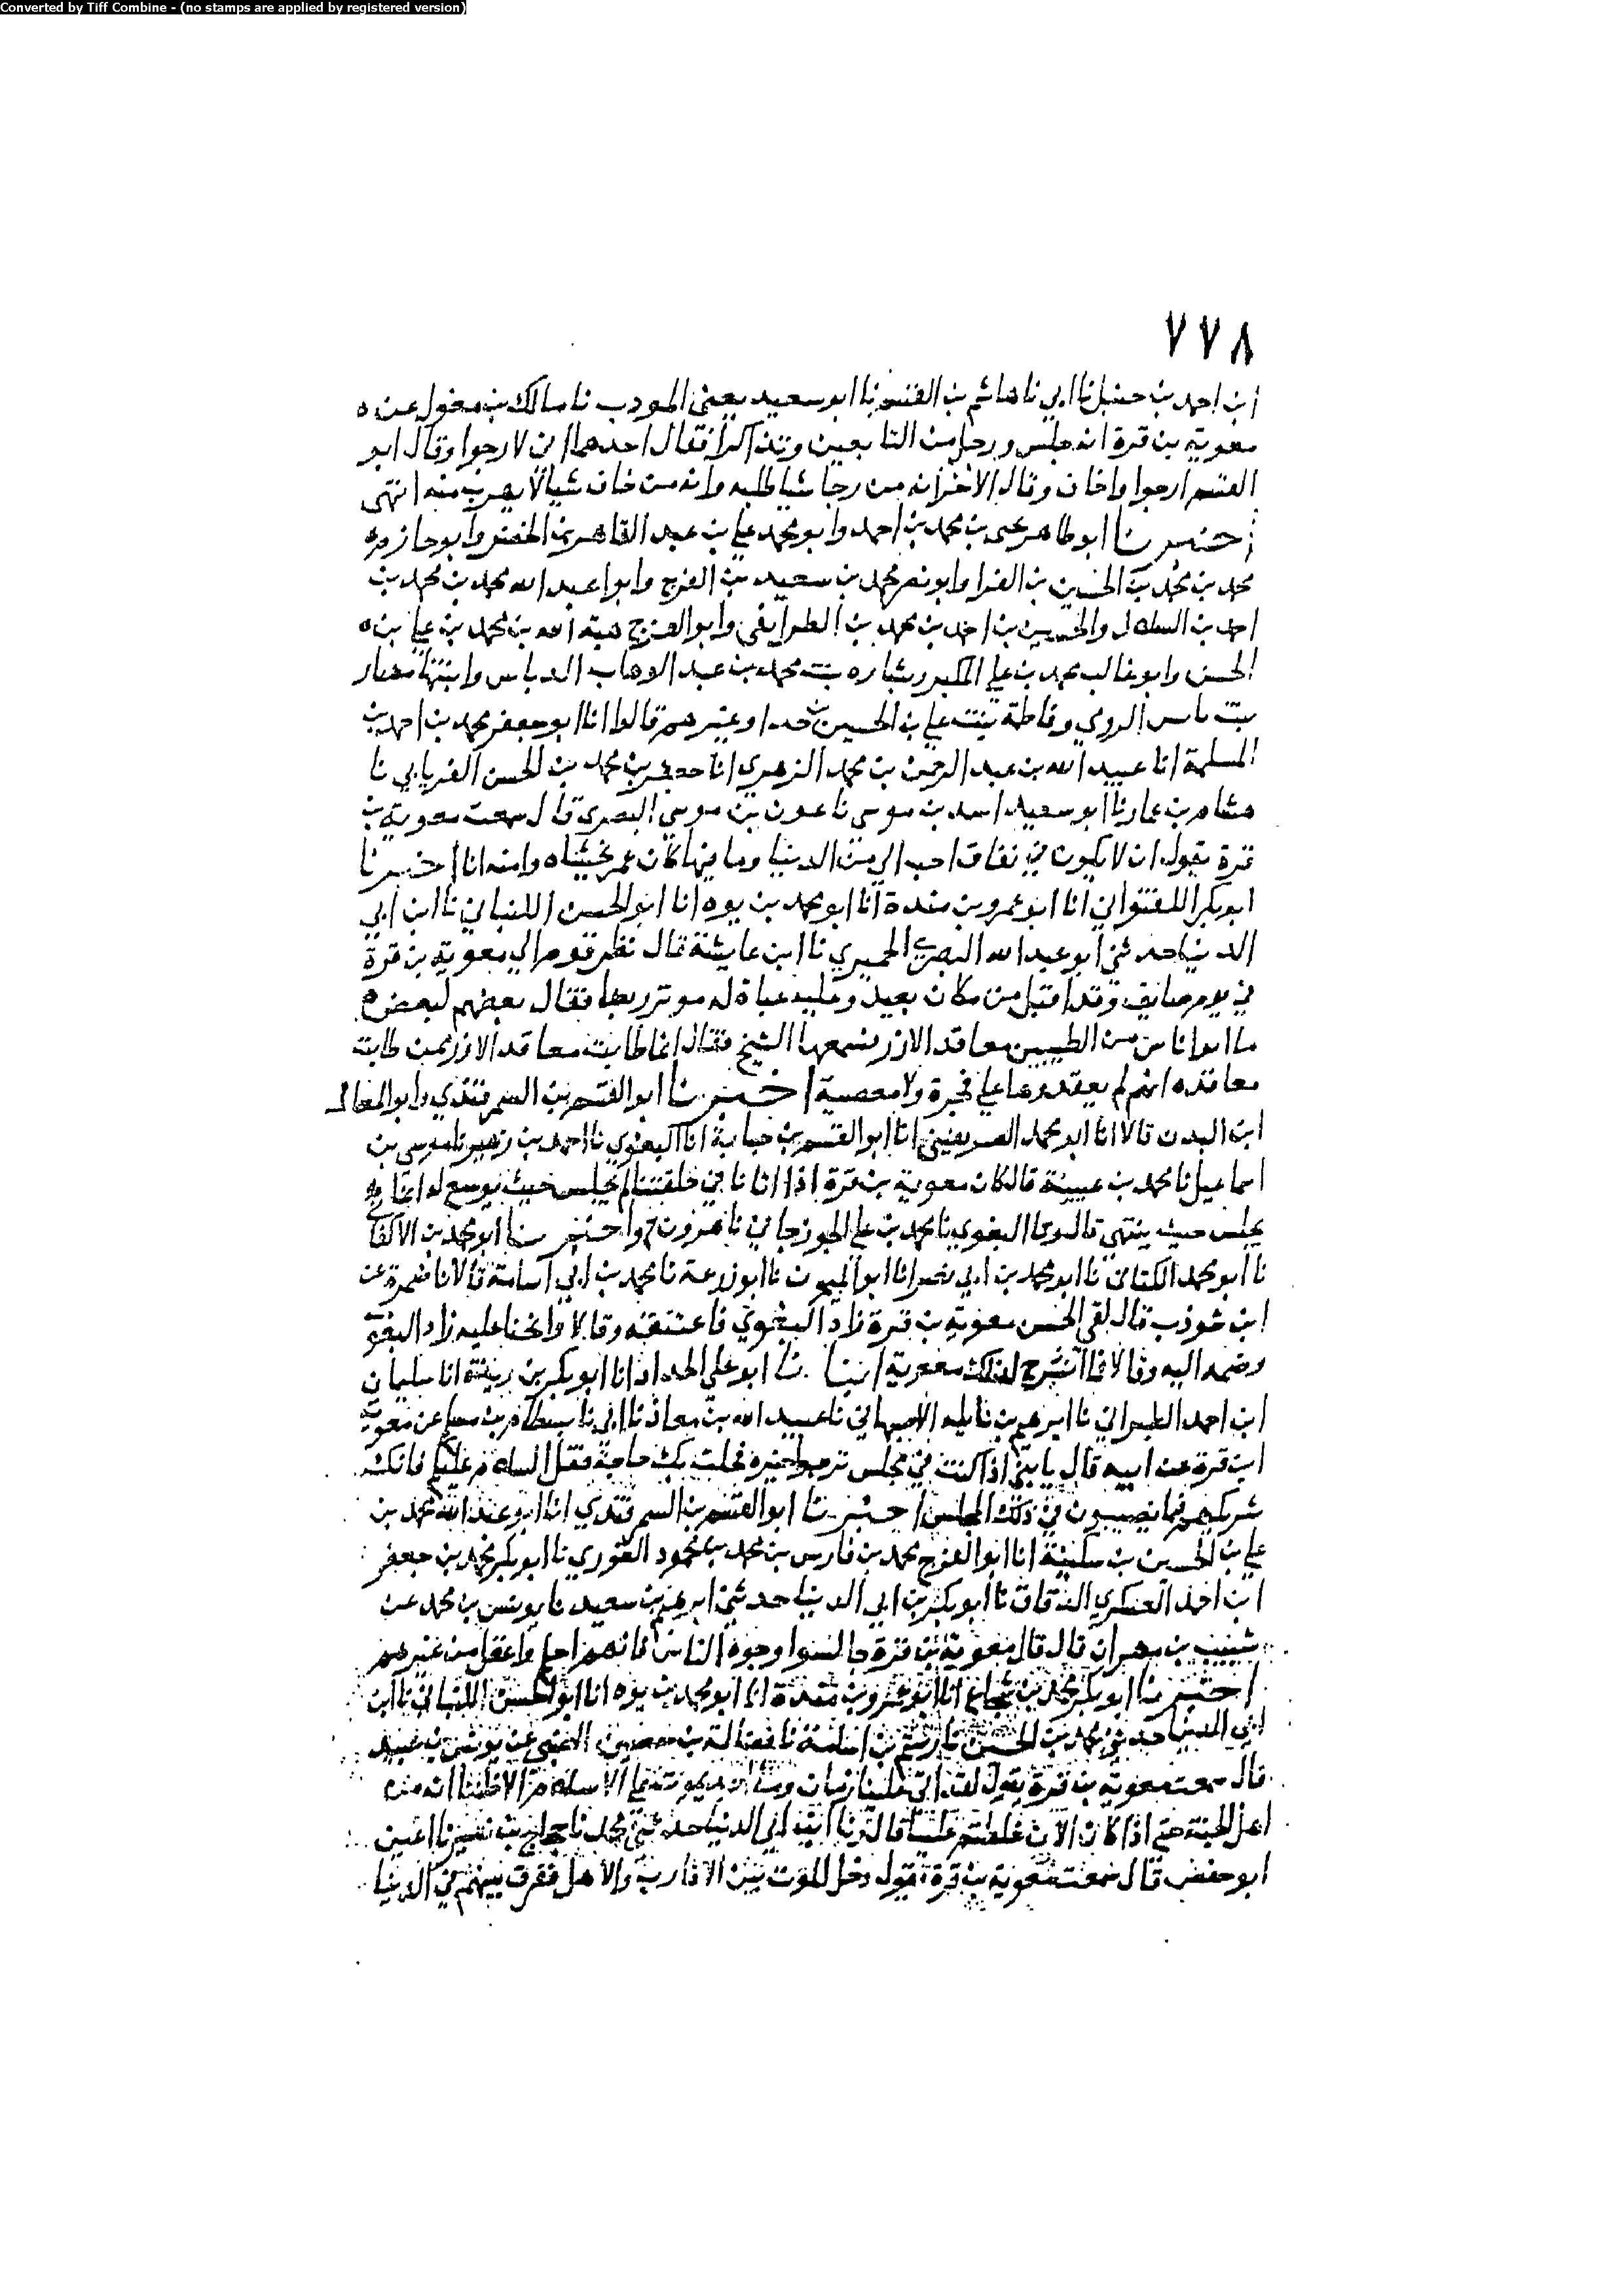 Converted by Tiff Combine - (no stamps are applied by registered version)
٧٧٨
ابن احمد بن حنبل نا ابي نا هاشم بن القسم نا ابو سعيد يعني المودب نا مالك بن مغول عن
معوية بن قرة انه جلس ورجل من التابعين وتذاكرا فقال احدهما اني لارجوا وقال ابو
القسم ارجوا واخاف وقال الاخر انه من رجا شيا طلبه وانه من خاف شيا لا يهرب منه انتهى
اخبرنا ابو طاهر يحيى بن محمد بن احمد وابو محمد علي بن عبد القاهر بن الخضر وابو حازم
محمد بن محمد بن الحسين بن الفرا وابو نصر محمد بن سعيد بن الفرج وابوا عبد الله محمد بن محمد بن
احمد بن السلال والحسين بن احمد بن محمد بن الطرايفي وابو الفرج هبة الله بن محمد بن علي بن
الحسن وابو غالب محمد بن علي المكبر وشاره بنت محمد بن عبد الوهاب الدباس وابنتها
بنت الرومي وفاطمة بنت علي بن الحسين بن حدا وغيرهم قالوا انا ابو جعفر محمد بن احمد بن
المسلمة انا عبيد الله بن عبد الرحمن بن محمد الزهري انا جعفر بن محمد بن الحسن الفريابي نا
هشام بن عمار نا ابو سعيد اسد بن موسى نا عون بن موسى البصري قال سمعت معوية بن
قرة يقول ان لا يكون في نفاق احب الي من الدنيا وما فيها كان عمر يخشاه وامنه انا اخبرنا
ابو بكر اللفتواني انا ابو عمرو بن مندة انا ابو محمد بن يوه انا ابو الحسن اللنباني نا ابن ابي
الدنيا حدثني ابو عبد الله البصري الحميري نا ابن عايشة قال نظر قوم الي معوية بن قرة
في يوم صايف وقد اقبل من مكان بعيد وعليه عباة له موتزر بها فقال بعضهم لبعض
ما اناس من الطيبين معاقد الازر فسمعها الشيخ فقال انما طابت معاقد الازر بمن طابت
معاقده انهم لم يعقدوها علي فجرة ولا معصية اخبرنا ابو القسم بن السمرقندي وابو المعالي
ابن البدن قالا انا ابو محمد الصريفيني انا ابو القسم بن حبابة انا البغوي نا احمد بن زهير نا موسى بن
اسماعيل نا محمد بن عيينة قال كان معوية بن قرة اذا اتانا في حلقتنا لم يجلس حيث يوسع له انما
يجلس حيث ينتهي قال ونا البغوي نا محمد بن علي الجوزجاني نا هرون ح واخبرنا ابو محمد بن الاكفاني
نا ابو محمد الكتاني نا ابو محمد بن ابي نصر انا ابو الميمون نا ابو زرعة نا محمد بن ابي اسامة قالا نا ضمرة عن
ابن شوذب قال لقي الحسن معوية بن قرة زاد البغوي فاعتنقه وقالا وانحنا عليه زاد البغوي
وضمه اليه وقالا فما انشرح لذلك معوية انبانا ابو علي الحداد انا ابو بكر بن ريذة انا سليمان
ابن احمد الطبراني نا ابرهيم بن نايله الاصبهاني نا عبيد الله بن معاذ نا ابي نا بسطام بن مسلم عن معوية
ابن قرة عن ابيه قال يا بني اذا كنت في مجلس ترجوا خيره فعجلت بك حاجة فقل السلام عليكم فانك
شريكهم فيما يصيبون في ذلك المجلس اخبرنا ابو القسم بن السمرقندي انا ابو عبد الله محمد بن
علي بن الحسين بن سكينة انا ابو الفرج محمد بن فارس بن محمد بن محمود الغوري نا ابو بكر محمد بن جعفر
ابن احمد العسكري الدقاق نا ابو بكر بن ابي الدنيا حدثني ابرهيم بن سعيد نا يونس بن محمد عن
شبيب بن مهران قال قال معوية بن قرة جالسوا وجوه الناس فانهم احلم واعقل من غيرهم
اخبرنا ابو بكر محمد بن شجاع انا ابو عمرو بن مندة انا ابو محمد بن يوه انا ابو الحسن اللنباني نا ابن
ابي الدنيا حدثني محمد بن الحسين نا رستم بن اسامة نا فضالة بن حصين الضبي عن يونس بن عبيد
قال سمعت معوية بن قرة يقول لقد اتى علينا زمان وما احد يموت علي الاسلام الا ظننا انه من
اهل الجنة حتى اذا كان الان خلطتم علينا قال ونا ابن ابي الدنيا حدثني محمد نا حجاج بن نصير نا اعين
ابو حفص قال سمعت معوية بن قرة يقول دخل الموت بين الاقارب والاهل ففرق بينهم في الدنيا